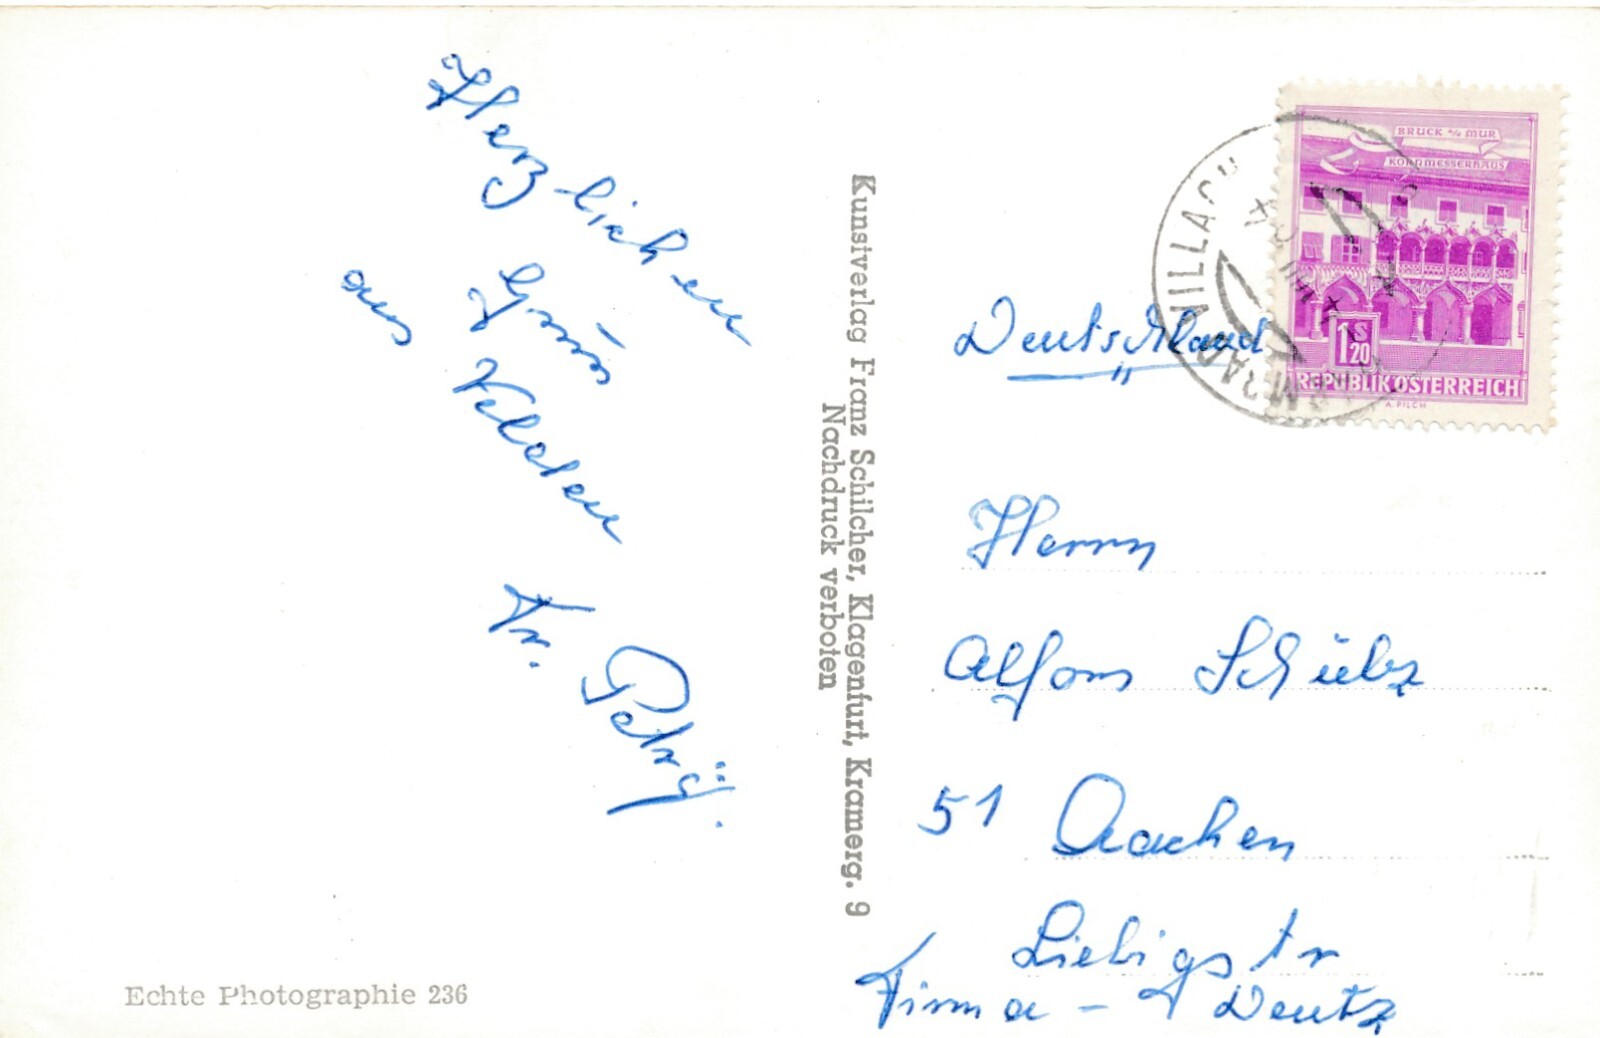 Herzlichen
Gruß
aus Velden
Fr. Petrÿ.
Echte Photographie 236
Kunstverlag Franz Schilcher, Klagenfurt, Kramerg. 9
Nachdruck verboten
BRUCK a/d MUR
KORNMESSERHAUS
1 S 20
REPUBLIK ÖSTERREICH
A. PILCH
VILLACH
Deutschland
Herrn
Alfons Schübz
51 Aachen
Liebigstr
Firma - Deutz